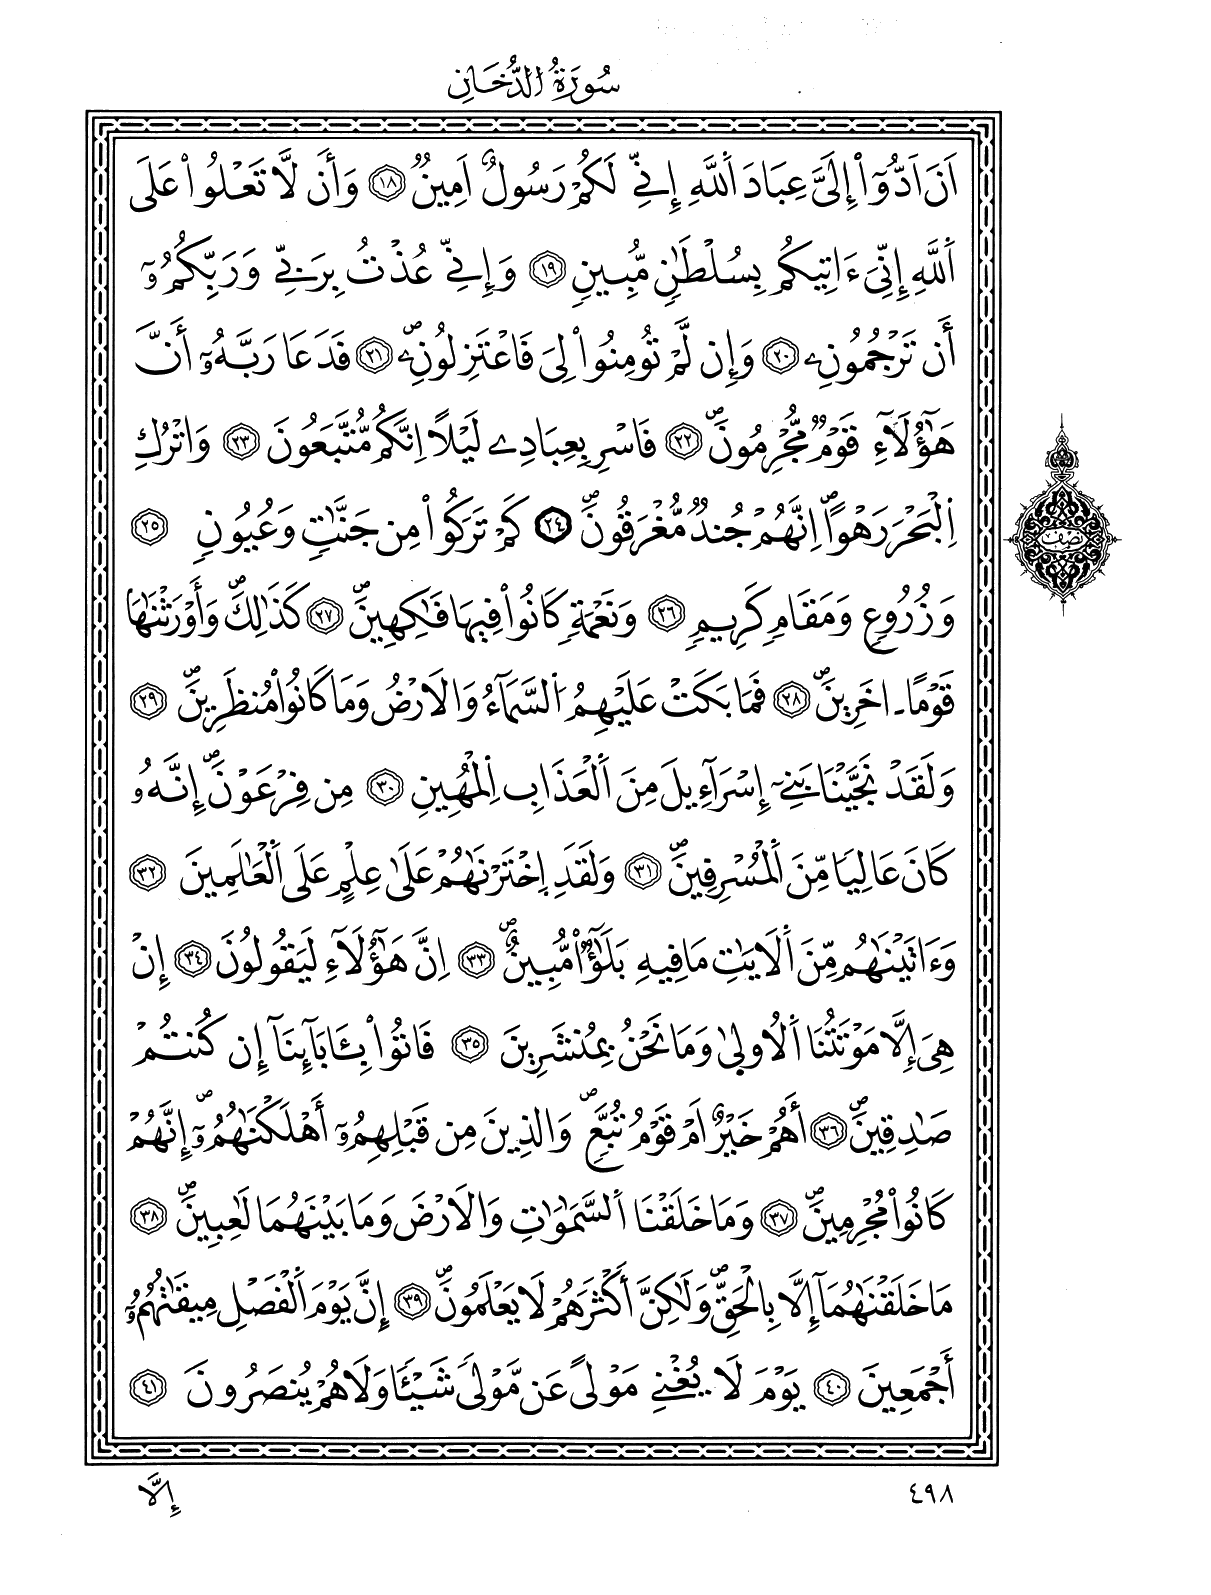 سُورَةُ الدُّخَانِ
اَنَ اَدُّوٓاْ إِلَيَّ عِبَادَ اَ۬للَّهِ إِنِّے لَكُمْ رَسُولٌ اَمِينٞ ١٨ وَأَن لَّا تَعْلُواْ عَلَى
اَ۬للَّهِ إِنِّيَ ءَاتِيكُم بِسُلْطَٰنٖ مُّبِينٖ ١٩ وَإِنِّے عُذْتُ بِرَبِّے وَرَبِّكُمُۥٓ
أَن تَرْجُمُونِۦ ٢٠ وَإِن لَّمْ تُومِنُواْ لِيَ فَاعْتَزِلُونِۦ ٢١ فَدَعَا رَبَّهُۥٓ أَنَّ
هَٰٓؤُلَآءِ قَوْمٞ مُّجْرِمُونَ ٢٢ فَاسْرِ بِعِبَادِے لَيْلاً اِنَّكُم مُّتَّبَعُونَ ٢٣ وَاتْرُكِ
اِ۬لْبَحْرَ رَهْواً اِنَّهُمْ جُندٞ مُّغْرَقُونَ ٢٤ كَمْ تَرَكُواْ مِن جَنَّٰتٖ وَعُيُونٖ ٢٥
وَزُرُوعٖ وَمَقَامٖ كَرِيمٖ ٢٦ وَنَعْمَةٖ كَانُواْ فِيهَا فَٰكِهِينَ ٢٧ كَذَٰلِكَ وَأَوْرَثْنَٰهَا
قَوْماً ـ اخَرِينَ ٢٨ فَمَا بَكَتْ عَلَيْهِمُ اُ۬لسَّمَآءُ وَالَارْضُ وَمَا كَانُواْ مُنظَرِينَ ٢٩
وَلَقَدْ نَجَّيْنَا بَنِےٓ إِسْرَآءِيلَ مِنَ اَ۬لْعَذَابِ اِ۬لْمُهِينِ ٣٠ مِن فِرْعَوْنَ إِنَّهُۥ
كَانَ عَالِياٗ مِّنَ اَ۬لْمُسْرِفِينَ ٣١ وَلَقَدِ اِ۪خْتَرْنَٰهُمْ عَلَىٰ عِلْمٍ عَلَى اَ۬لْعَٰلَمِينَ ٣٢
وَءَاتَيْنَٰهُم مِّنَ اَ۬لَايَٰتِ مَا فِيهِ بَلَٰٓؤٞاْ مُّبِينٌ ٣٣ اِنَّ هَٰٓؤُلَآءِ لَيَقُولُونَ ٣٤ إِنْ
هِيَ إِلَّا مَوْتَتُنَا اَ۬لُاولَىٰ وَمَا نَحْنُ بِمُنشَرِينَ ٣٥ فَاتُواْ بِـَٔابَآئِنَآ إِن كُنتُمْ
صَٰدِقِينَ ٣٦ أَهُمْ خَيْرٌ اَمْ قَوْمُ تُبَّعٖ وَالذِينَ مِن قَبْلِهِمُۥٓ أَهْلَكْنَٰهُمُۥٓ إِنَّهُمْ
كَانُواْ مُجْرِمِينَ ٣٧ وَمَا خَلَقْنَا اَ۬لسَّمَٰوَٰتِ وَالَارْضَ وَمَا بَيْنَهُمَا لَٰعِبِينَ ٣٨
مَا خَلَقْنَٰهُمَآ إِلَّا بِالْحَقِّ وَلَٰكِنَّ أَكْثَرَهُمْ لَا يَعْلَمُونَ ٣٩ إِنَّ يَوْمَ اَ۬لْفَصْلِ مِيقَٰتُهُمُۥٓ
أَجْمَعِينَ ٤٠ يَوْمَ لَا يُغْنِے مَوْلىً عَن مَّوْلىٗ شَيْـٔاٗ وَلَا هُمْ يُنصَرُونَ ٤١
نصف
٤٩٨
إِلَّا